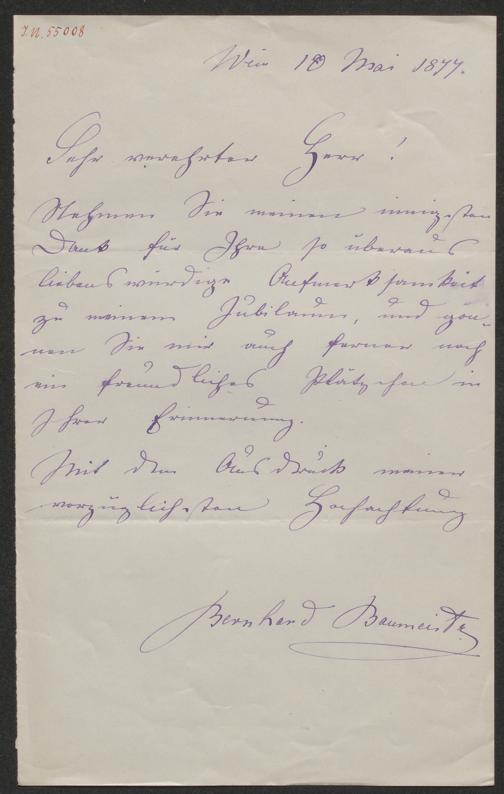 I.N. 55008
Wien 18 Mai 1877.
Sehr verehrter Herr!
Nehmen Sie meinen innigsten
Dank für Ihre so überaus
liebenswürdige Aufmerksamkeit
zu meinem Jubiläum, und gön-
nen Sie mir auch ferner noch
ein freundliches Plätzchen in
Ihrer Erinnerung.
Mit dem Ausdruck meiner
vorzüglichsten Hochachtung
Bernhard Baumeister